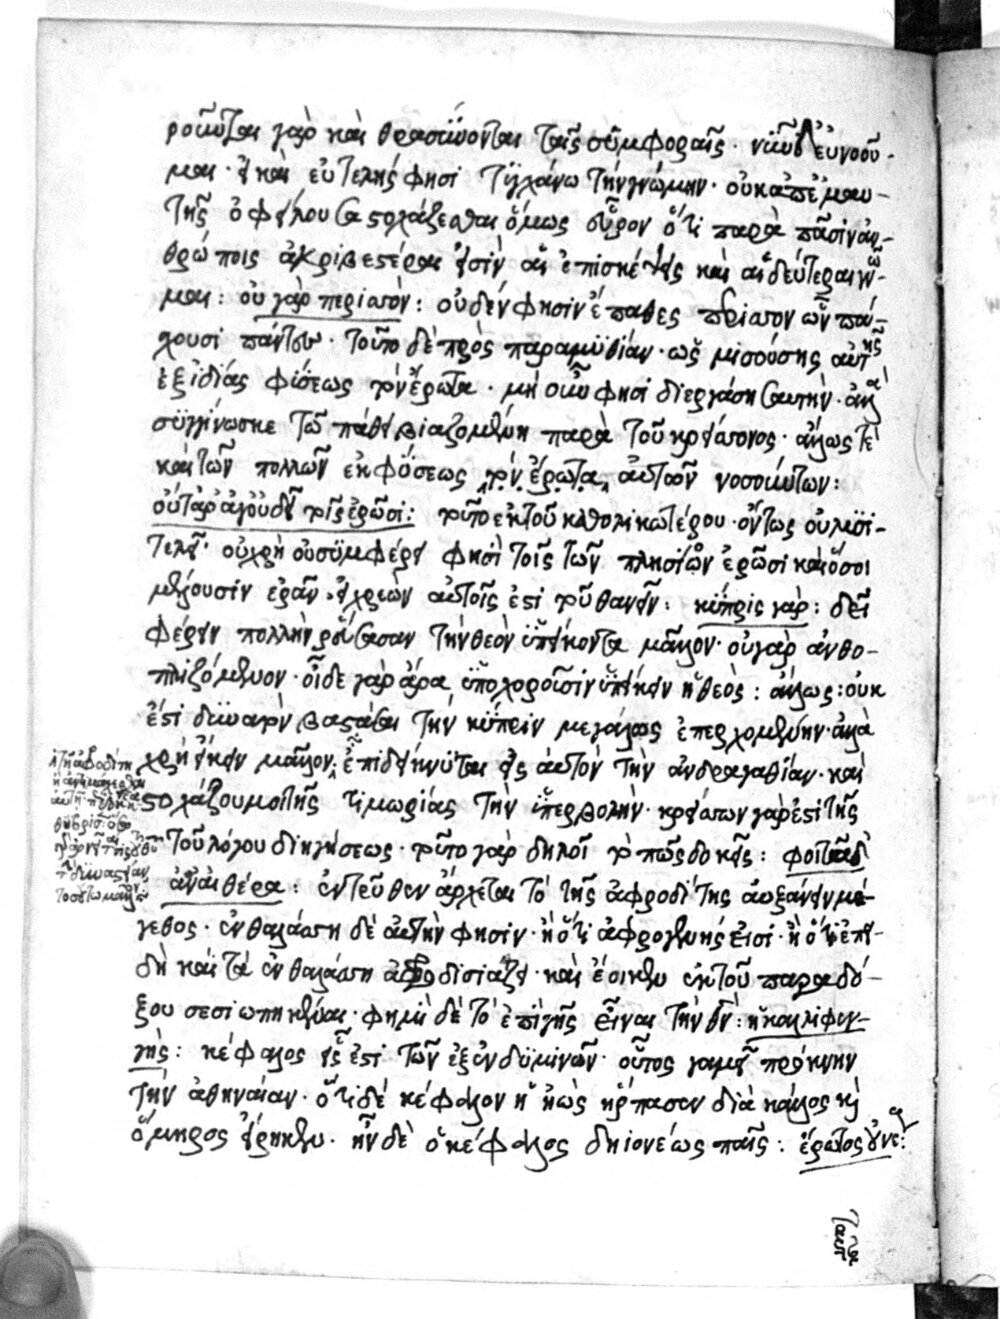 ροῦνται γὰρ καὶ θρασύνονται ταῖς συμφοραῖς· νῦν δ' ἐννοοῦ-
μαι· εἰ καὶ εὐτελής φησι τυγχάνω τὴν γνώμην· οὐκ ἀπ' ἐμαυ-
τῆς ὀφείλουσα στοχάζεσθαι ὅμως εὗρον ὅτι παρὰ πᾶσιν ἀν-
θρώποις ἀκριβέστεραι εἰσὶν αἱ ἐπισκέψεις καὶ αἱ δεύτεραι γνῶ-
μαι: οὐ γὰρ περισσὸν: οὐδέν φησιν ἔπαθες περισσὸν ὧν πά-
σχουσι πάντων· τοῦτο δὲ πρὸς παραμυθίαν· ὡς μισούσης αὐτῆς
ἐξ ἰδίας φύσεως τὸν ἔρωτα· μὴ οὖν φησι διεργάσῃ σαυτὴν· ἀλλὰ
συγγίνωσκε τῷ πάθει βιαζομένη παρὰ τοῦ κρείσσονος· ἄλλως τε
καὶ τῶν πολλῶν ἐκ φύσεως τὸν ἔρωτα αὐτῶν νοσούντων:
οὔτἄρ' ἀγὼν δὴ τοῖς ἐρῶσι: τοῦτο ἐκ τοῦ καθολικωτέρου· ὄντως οὐ λυσι-
τελεῖ· οὐ χρὴ οὐ συμφέρει φησὶ τοῖς τῶν πλησίον ἐρῶσι καὶ ὅσοι
μέλλουσιν ἐρᾶν· εἰ χρεὼν αὐτοῖς ἐστι τοῦ θανεῖν: κύπρις γὰρ: δεῖ
φέρειν πολλὴν ῥεύσασαν τὴν θεὸν ὑπείκοντα μᾶλλον· οὐ γὰρ ἀνθο-
πλιζόμενον· οἶδε γὰρ ἄρα ὑποχωροῦσιν ὑπείκειν ἡ θεὸς: ἄλλως: οὐκ
ἔστι δυνατὸν βαστάσαι τὴν κύπριν μεγάλως ἐπερχομένην· ἀλλὰ
χρὴ εἴκειν μᾶλλον, ἢ ἐπιδείκνυσθαι εἰς αὐτὸν τὴν ἀνδραγαθίαν· καὶ
στοχάζου μοι τῆς τιμωρίας τὴν ὑπερβολὴν· κρείσσων γάρ ἐστι τῆς
τοῦ λόγου διηγήσεως· τοῦτο γὰρ δηλοῖ τὸ πῶς δοκεῖς: φοιτᾷ δ'
ἀν' αἰθέρα: ἐντεῦθεν ἄρχεται τὸ τῆς ἀφροδίτης αὐξάνειν μέ-
γεθος· ἐν θαλάσσῃ δὲ αὐτὴν φησιν· ἢ ὅτι ἀφρογενής ἐστι· ἢ ὅτι ἐπει-
δὴ καὶ τὰ ἐν θαλάσσῃ ἀφροδισιάζει· καὶ ἔοικεν ἐκ τοῦ παραδό-
ξου σεσιωπηκέναι· φημὶ δὲ τὸ ἐπὶ γῆς εἶναι τὴν θν: ἡ καλλιφεγ-
γὴς: κέφαλος εἷς ἐστι τῶν ἐξ ἐνδυμίνων· οὗτος γαμεῖ πρόκνην
τὴν ἀθηναίαν· ὅτι δὲ κέφαλον ἡ ἠὼς ἥρπασεν διὰ κάλλος καὶ
ὅμηρος εἴρηκεν· ἦν δὲ ὁ κέφαλος δηιονέως παῖς: ἔρωτος οὕνεκα: